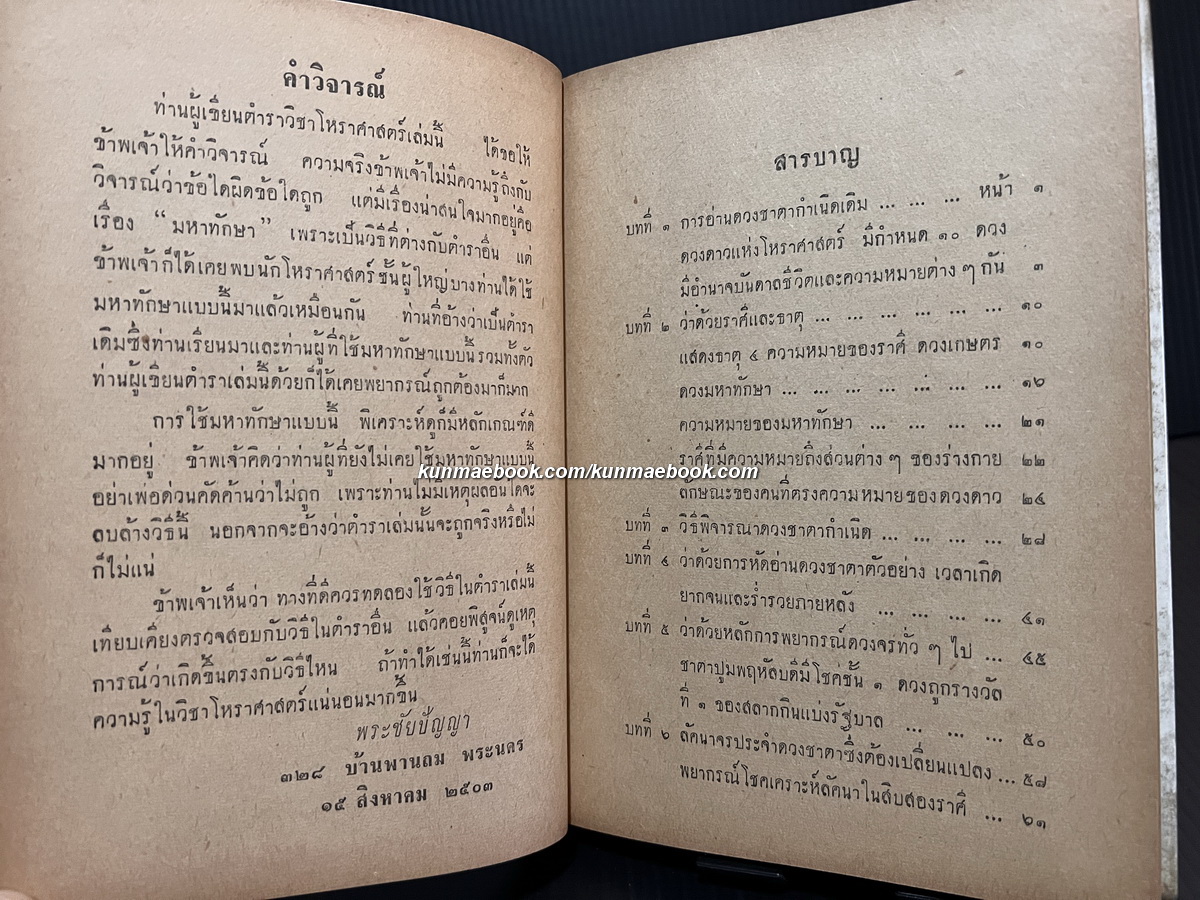 คำวิจารณ์
ท่านผู้เขียนตำราวิชาโหราศาสตร์เล่มนี้ ได้ขอให้
ข้าพเจ้าให้คำวิจารณ์ ความจริงข้าพเจ้าไม่มีความรู้ถึงกับ
วิจารณ์ว่าข้อใดผิดข้อใดถูก แต่มีเรื่องน่าสนใจมากอยู่คือ
เรื่อง “มหาทักษา” เพราะเป็นวิธีที่ต่างกับตำราอื่น แต่
ข้าพเจ้าก็ได้เคยพบนักโหราศาสตร์ชั้นผู้ใหญ่บางท่านได้ใช้
มหาทักษาแบบนี้มาแล้วเหมือนกัน ท่านที่อ้างว่าเป็นตำรา
เดิมซึ่งท่านเรียนมาและท่านผู้ที่ใช้มหาทักษาแบบนี้รวมทั้งตัว
ท่านผู้เขียนตำราเล่มนี้ด้วยก็ได้เคยพยากรณ์ถูกต้องมาก็มาก
การใช้มหาทักษาแบบนี้ พิเคราะห์ดูก็มีหลักเกณฑ์ดี
มากอยู่ ข้าพเจ้าคิดว่าท่านผู้ที่ยังไม่เคยใช้มหาทักษาแบบนี้
อย่าเพ่อด่วนคัดค้านว่าไม่ถูก เพราะท่านไม่มีเหตุผลอื่นใดจะ
ลบล้างวิธีนี้ นอกจากจะอ้างว่าตำราเล่มนั้นจะถูกจริงหรือไม่
ก็ไม่แน่
ข้าพเจ้าเห็นว่า ทางที่ดีควรทดลองใช้วิธีในตำราเล่มนี้
เทียบเคียงตรวจสอบกับวิธีในตำราอื่น แล้วคอยพิสูจน์ดูเหตุ
การณ์ว่าเกิดขึ้นตรงกับวิธีไหน ถ้าทำได้เช่นนี้ท่านก็จะได้
ความรู้ในวิชาโหราศาสตร์แน่นอนมากขึ้น
พระชัยปัญญา
๓๒๘ บ้านพานถม พระนคร
๑๕ สิงหาคม ๒๕๐๓
สารบาญ
บทที่ ๑ การอ่านดวงชาตากำเนิดเดิม ... ... ... หน้า ๑
ดวงดาวแห่งโหราศาสตร์ มีกำหนด ๑๐ ดวง
มีอำนาจบันดาลชีวิตและความหมายต่าง ๆ กัน ๓
บทที่ ๒ ว่าด้วยราศีและธาตุ ... ... ... ... ... ... ๑๐
แสดงธาตุ ๔ ความหมายของราศี ดวงเกษตร ๑๐
ดวงมหาทักษา ... ... ... ... ... ... ... ๑๖
ความหมายของมหาทักษา ... ... ... ... ๒๑
ราศีที่มีความหมายถึงส่วนต่าง ๆ ของร่างกาย ๒๒
ลักษณะของคนที่ตรงความหมายของดวงดาว ๒๔
บทที่ ๓ วิธีพิจารณาดวงชาตากำเนิด ... ... ... ... ๒๘
บทที่ ๔ ว่าด้วยการหัดอ่านดวงชาตาตัวอย่าง เวลาเกิด
ยากจนและร่ำรวยภายหลัง ... ... ... ... ๔๑
บทที่ ๕ ว่าด้วยหลักการพยากรณ์ดวงจรทั่ว ๆ ไป ... ๔๕
ชาตาปูมพฤหัสบดีมีโชคชั้น ๑ ดวงถูกรางวัล
ที่ ๑ ของสลากกินแบ่งรัฐบาล ... ... ... ๕๐
บทที่ ๖ ลัคนาจรประจำดวงชาตาซึ่งต้องเปลี่ยนแปลง ... ๕๘
พยากรณ์โชคเคราะห์ลัคนาในสิบสองราศี ... ๖๑
kunmaebook.com/kunmaebook.com